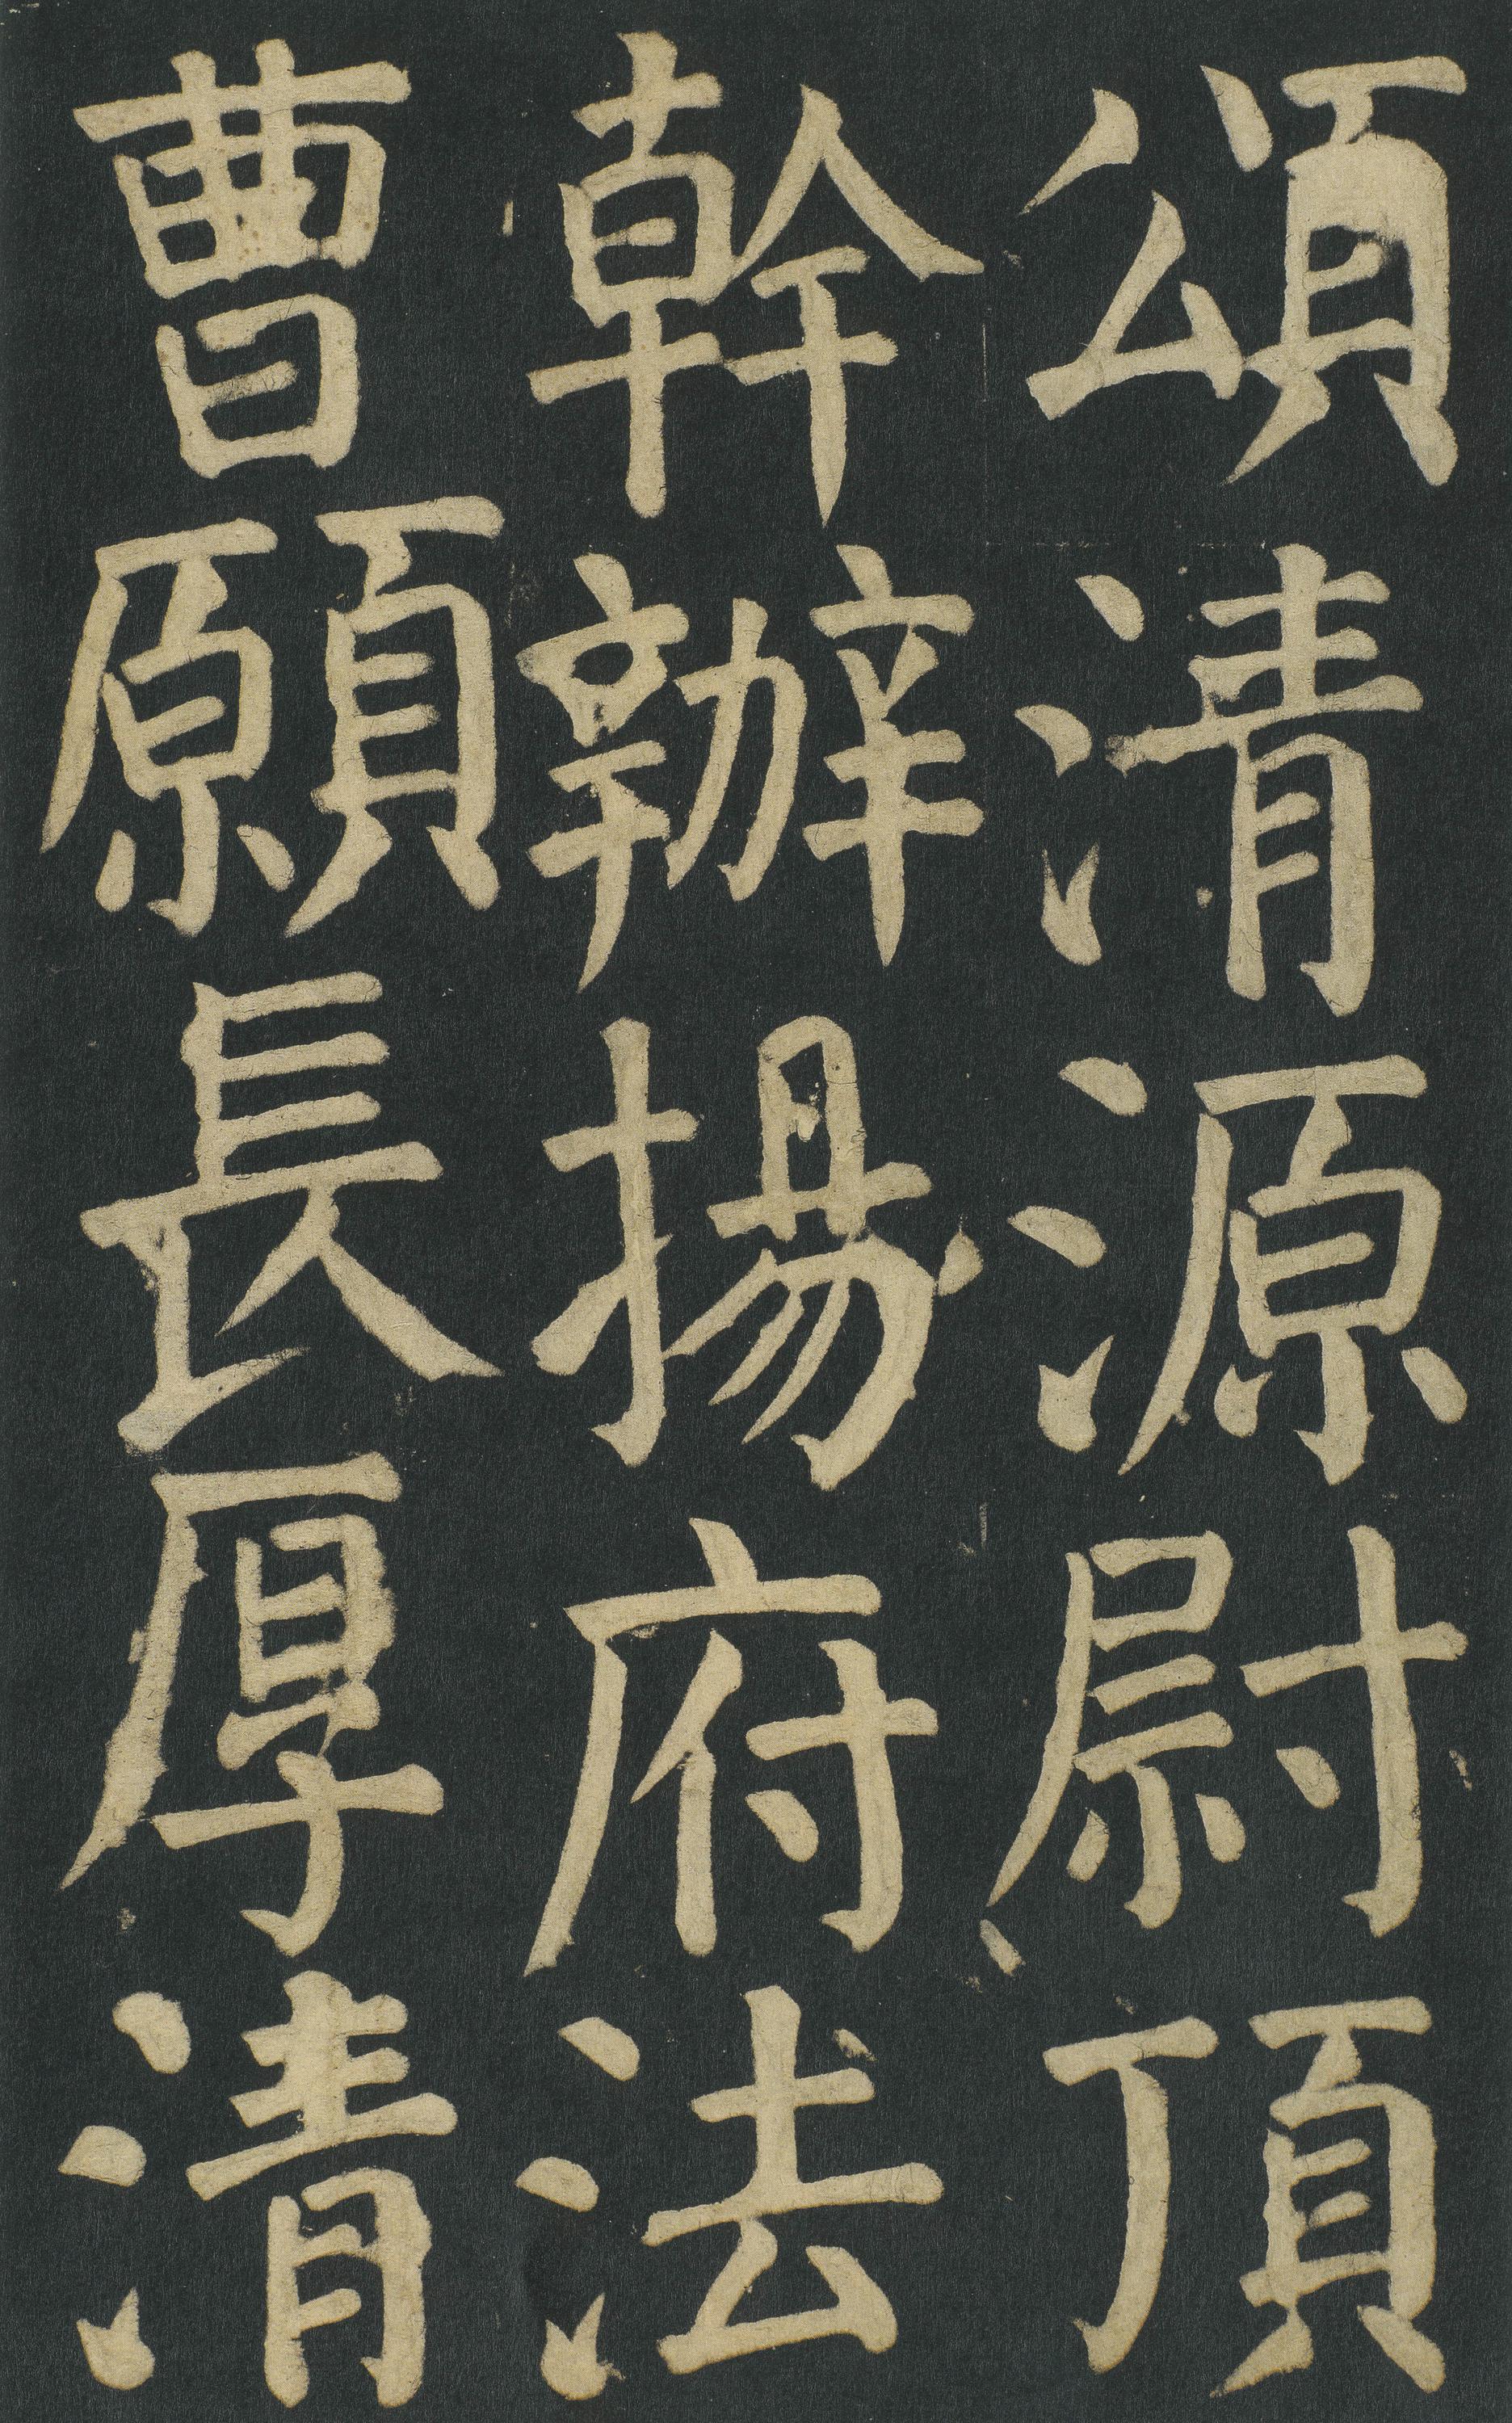 頌清源尉頂
幹辦揚府法
曹願長厚清